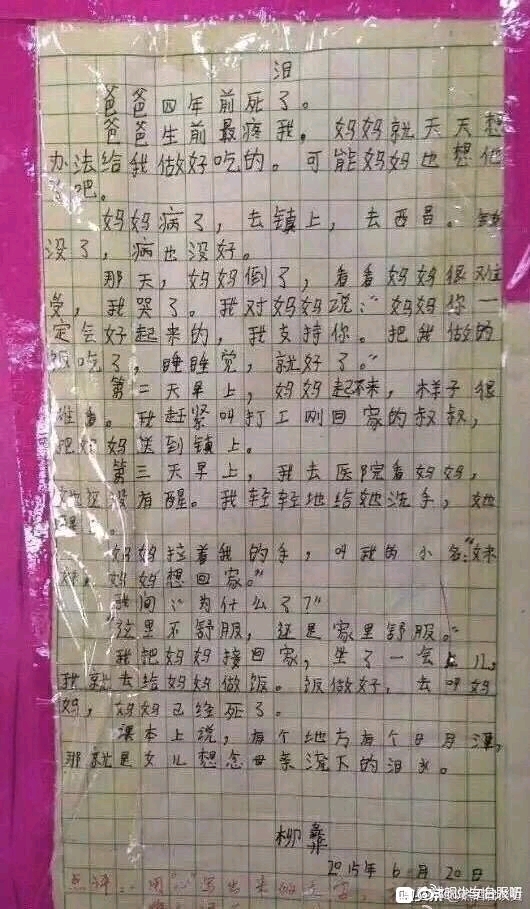 泪
爸爸四年前死了。
爸爸生前最疼我。妈妈就天天想
办法给我做好吃的。可能妈妈也想他
了吧。
妈妈病了，去镇上，去西昌。钱
没了，病也没好。
那天，妈妈倒了，看看妈妈很难
受，我哭了。我对妈妈说：“妈妈你一
定会好起来的，我支持你。把我做的
饭吃了，睡睡觉，就好了。”
第二天早上，妈妈起不来，样子很
难看。我赶紧叫打工刚回家的叔叔，
把妈妈送到镇上。
第三天早上，我去医院看妈妈，
她还没有醒。我轻轻地给她洗手，她
醒
妈妈拉着我的手，叫我的小名：“妹
妹，妈妈想回家。”
我问：“为什么了？”
“这里不舒服，还是家里舒服。”
我把妈妈接回家，坐了一会儿，
我就去给妈妈做饭。饭做好，去叫妈
妈，妈妈已经死了。
课本上说，有个地方有个日月潭，
那就是女儿想念母亲流下的泪水。
柳彝
2015年6月20日
点评：用“心”写出来的文字，